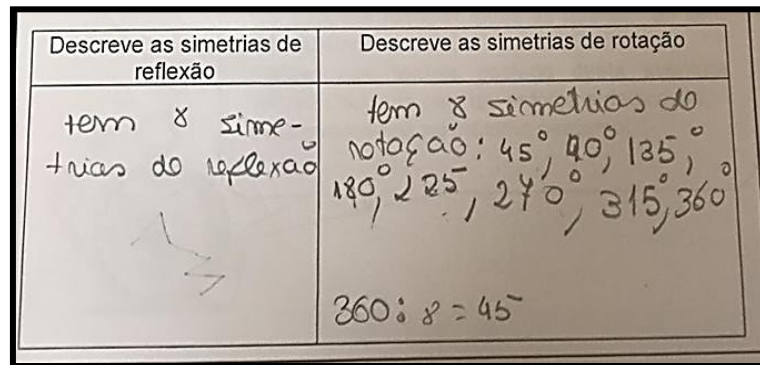 Descreve as simetrias de
reflexão
Descreve as simetrias de rotação
tem 8 sime-
trias de reflexão
tem 8 simetrias de
rotação: 45°, 90°, 135°,
180°, 225, 270°, 315°, 360°
360 : 8 = 45